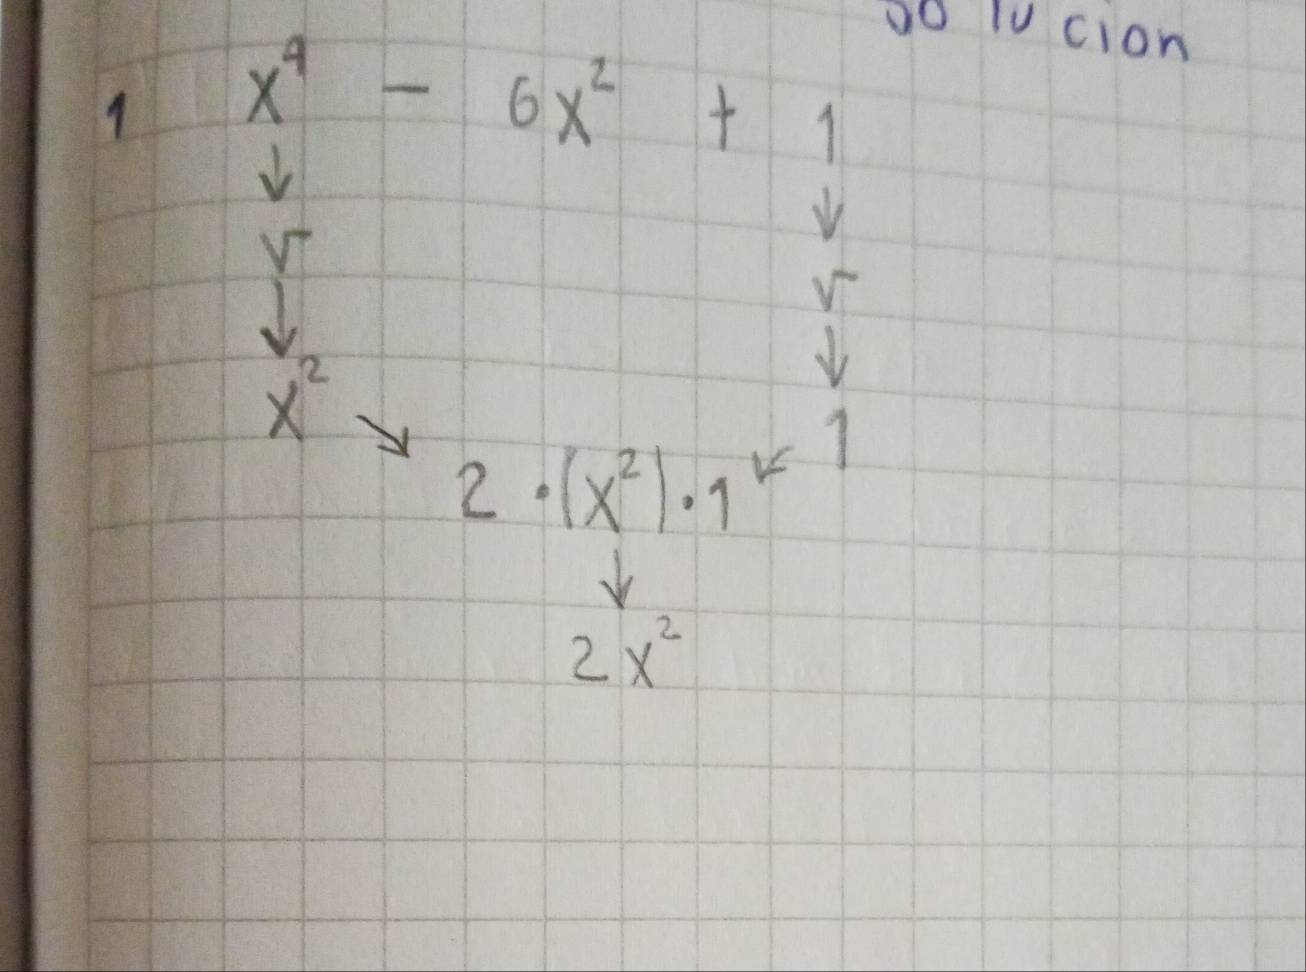 So lu cion
1 x⁴ - 6x² + 1
↓ ↓
√ √
↓ ↓
x² 1
↘ 2 · (x²) · 1 ↙
↓
2x²